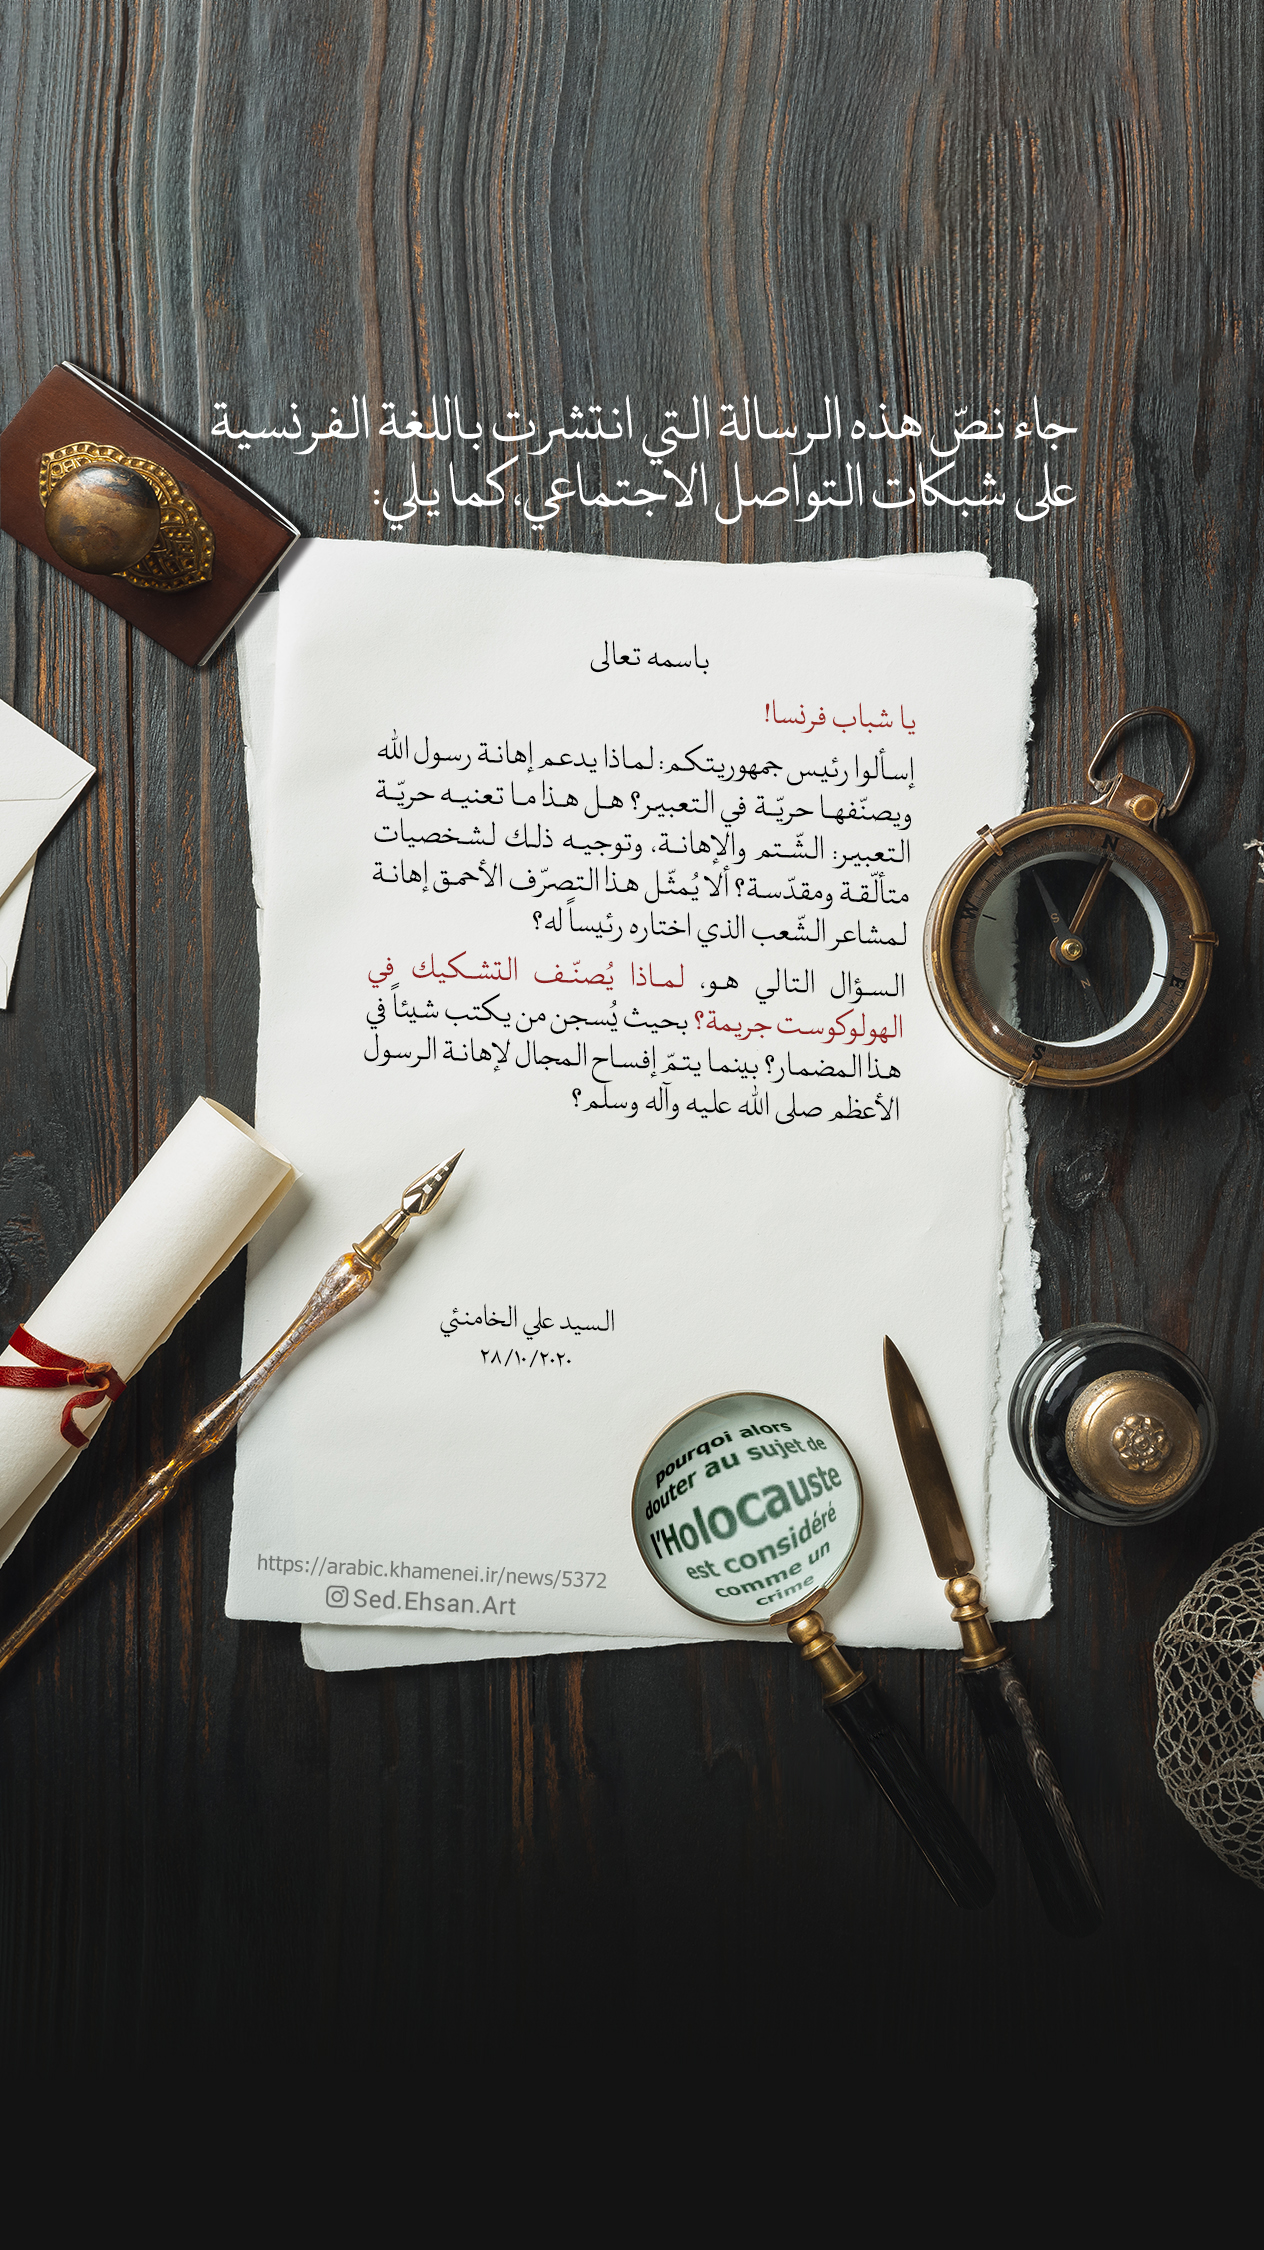 جاء نصّ هذه الرسالة التي انتشرت باللغة الفرنسية
على شبكات التواصل الاجتماعي، كما يلي:
باسمه تعالى
يا شباب فرنسا!
إسألوا رئيس جمهوريتكم: لماذا يدعم إهانة رسول الله
ويصنّفها حريّة في التعبير؟ هل هذا ما تعنيه حريّة
التعبير: الشّتم والإهانة، وتوجيه ذلك لشخصيات
متألّقة ومقدّسة؟ ألا يُمثّل هذا التصرّف الأحمق إهانة
لمشاعر الشّعب الذي اختاره رئيساً له؟
السؤال التالي هو، لماذا يُصنّف التشكيك في
الهولوكوست جريمة؟ بحيث يُسجن من يكتب شيئاً في
هذا المضمار؟ بينما يتمّ إفساح المجال لإهانة الرسول
الأعظم صلى الله عليه وآله وسلم؟
السيد علي الخامنئي
٢٨/١٠/٢٠٢٠
pourqoi alors
douter au sujet de
l'Holocauste
est considéré
comme un
crime
https://arabic.khamenei.ir/news/5372
Sed.Ehsan.Art
N
E
S
W
S
N